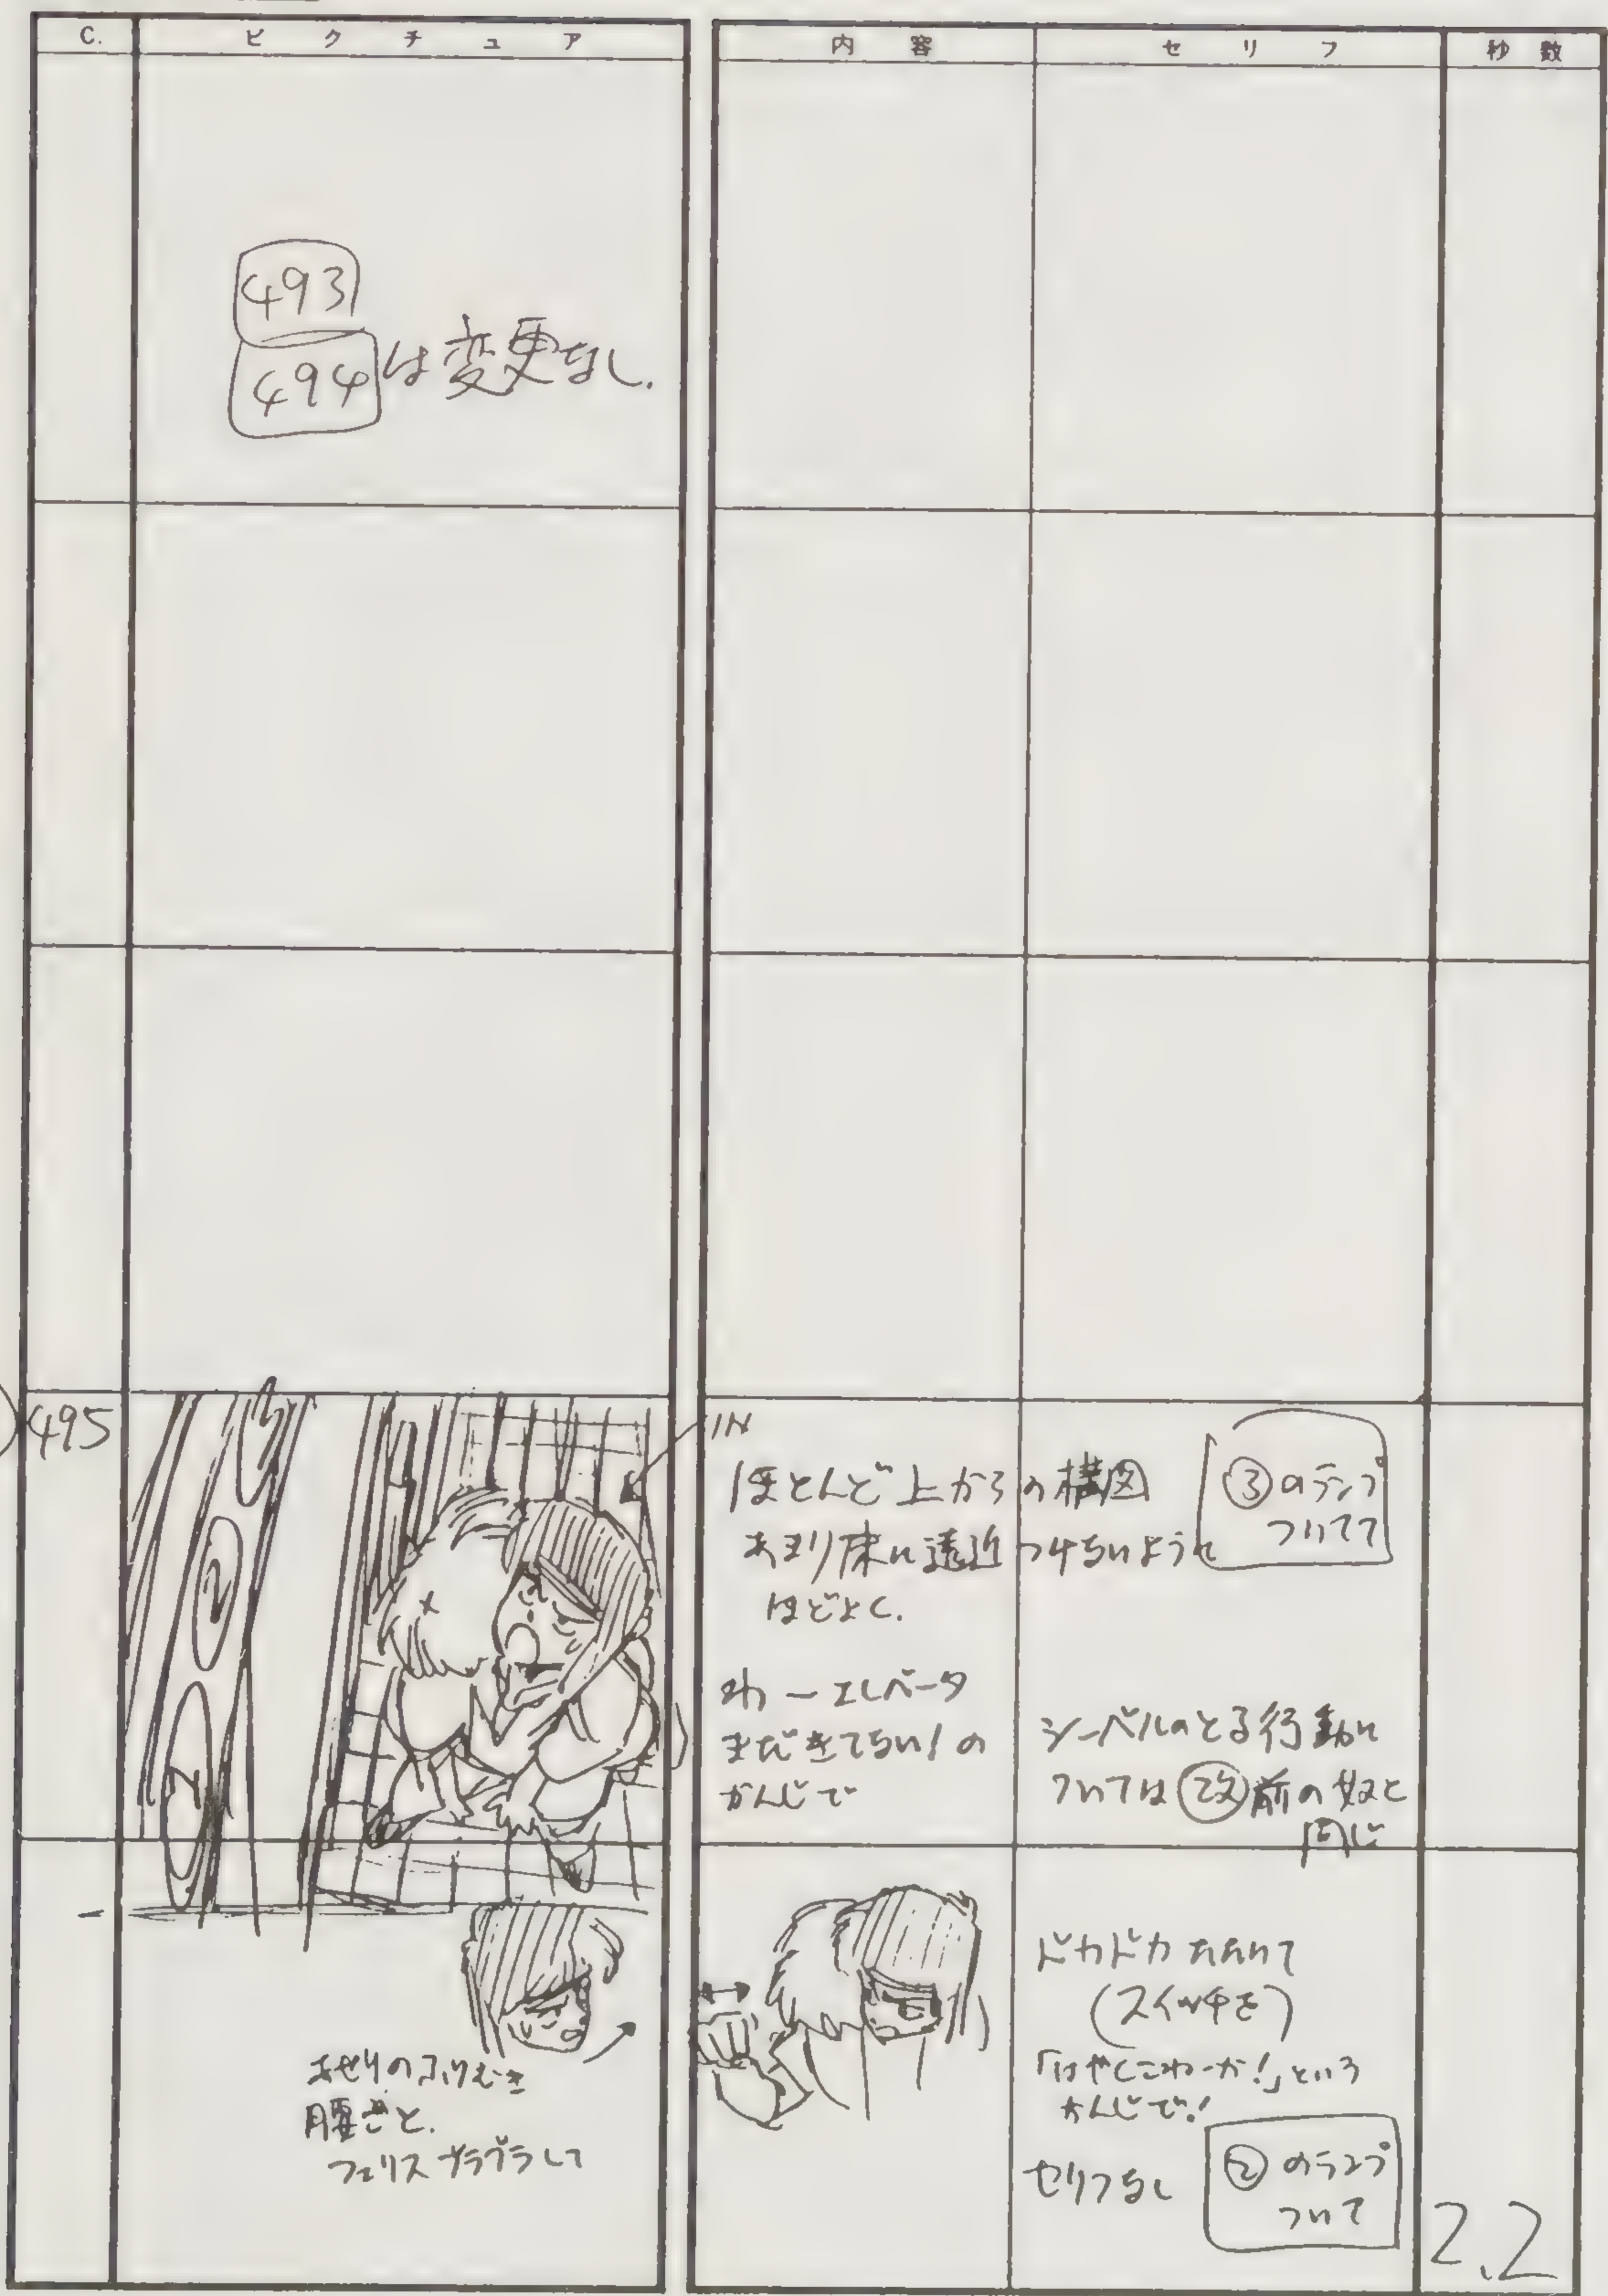 C.
ピクチュア
内容
セリフ
秒数
493
494
は変更なし.
495
3
2
1
IN
ほとんど上からの構図
あまり床に遠近つけないように
ほどよく.
③のランプ
ついてて
わーエレベータ
まだきてない!の
かんじで
シーベルのとる行動に
ついては改前の奴と
同じ
あせりのふりむき
腰ごと.
フェリスブラブラして
ドカドカたたいて
(スイッチを)
「はやくこねーか!」という
かんじで!
セリフなし
②のランプ
ついて
2.2